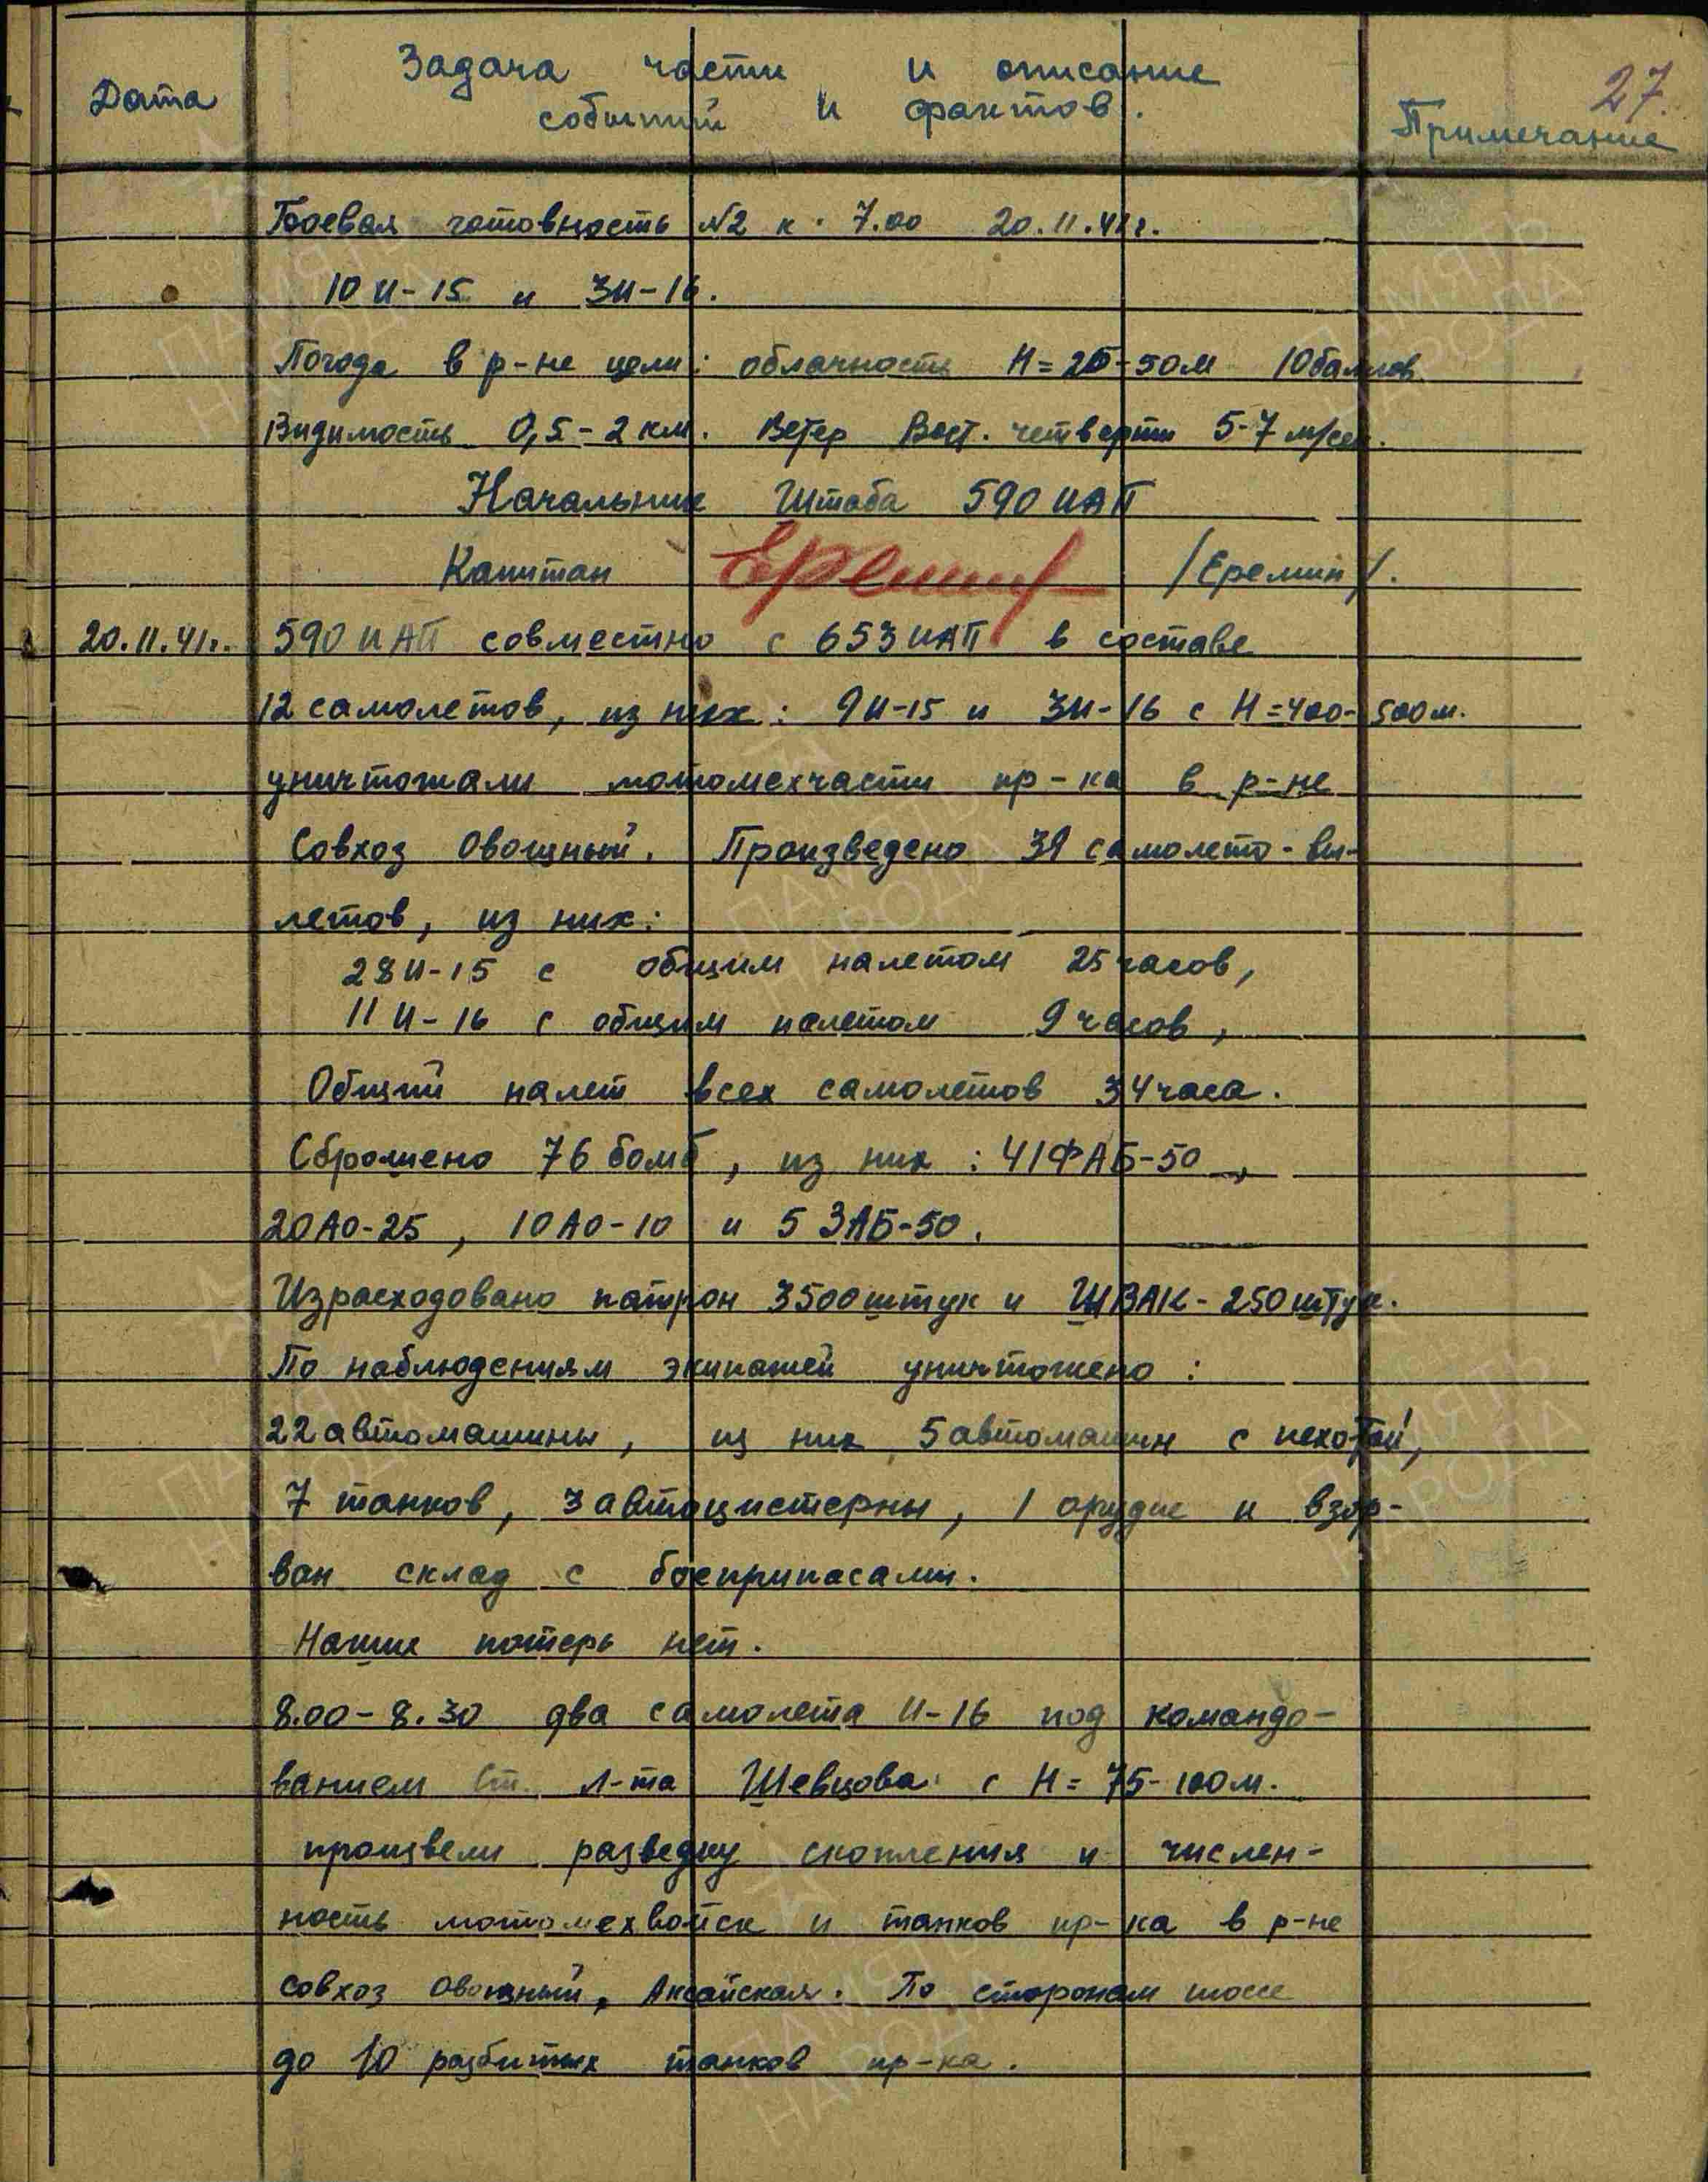 27.
Дата
Задача части и описание
событий и фактов.
Примечание
Боевая готовность №2 к 7.00 20.11.41г.
10 И-15 и 3И-16.
Погода в р-не цели: облачность Н=25-50м 10баллов
Видимость 0,5-2 км. Ветер Вост. четверти 5-7 м/сек.
Начальник Штаба 590 ИАП
Капитан Еремин /Еремин/.
20.11.41г. 590 ИАП совместно с 653 ИАП в составе
12 самолетов, из них: 9И-15 и 3И-16 с Н=400-500м.
уничтожали мотомехчасти пр-ка в р-не
Совхоз Овощный. Произведено 39 самолето-вы-
летов, из них:
28 И-15 с общим налетом 25 часов,
11 И-16 с общим налетом 9 часов,
Общий налет всех самолетов 34 часа.
Сброшено 76 бомб, из них: 41 ФАБ-50,
20 АО-25, 10 АО-10 и 5 ЗАБ-50.
Израсходовано патрон 3500 штук и ШВАК-250 штук.
По наблюдениям экипажей уничтожено:
22 автомашины, из них 5 автомашин с пехотой,
7 танков, 3 автоцистерны, 1 орудие и взор-
ван склад с боеприпасами.
Наших потерь нет.
8.00-8.30 два самолета И-16 под командо-
ванием Ст. Л-та Шевцова с Н=75-100м.
произвели разведку скопления и числен-
ность мотомехвойск и танков пр-ка в р-не
совхоз Овощный, Аксайская. По сторонам шоссе
до 10 разбитых танков пр-ка.
ПАМЯТЬ
НАРОДА
ПАМЯТЬ
НАРОДА
ПАМЯТЬ
НАРОДА
ПАМЯТЬ
НАРОДА
ПАМЯТЬ
НАРОДА
ПАМЯТЬ
НАРОДА